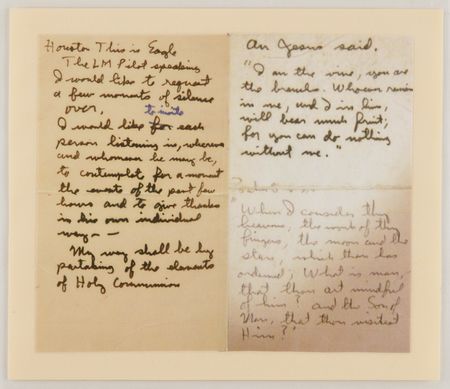 Houston This is Eagle
The LM Pilot speaking
I would like to request
a few moments of silence
over.
to invite
I would like for each
person listening in, wherever
and whomever he may be,
to contemplate for a moment
the events of the past few
hours and to give thanks
in his own individual
way – –
My way shall be by
partaking of the elements
of Holy Communion
An Jesus said,
"I am the vine, you are
the branches. Whoever remains
in me, and I in him,
will bear much fruit;
for you can do nothing
without me."
When I consider thy
heavens, the work of thy
fingers, the moon and the
stars, which thou has
ordained; What is man,
that thou art mindful
of him? and the Son of
Man, that thou visitest
Him?"